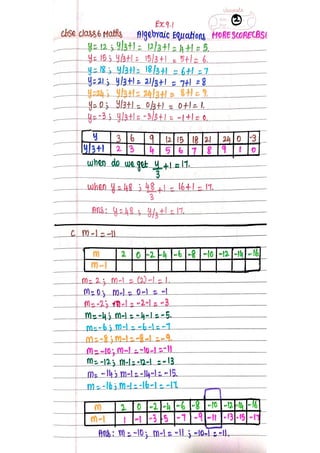 Ex 9.1
2
CBSE Class 6 Maths Algebraic Equations MORESCORECBSE
y=12 ; y/3+1 = 12/3+1 = 4+1 = 5.
y=15 ; y/3+1 = 15/3+1 = 5+1 = 6.
y=18 ; y/3+1 = 18/3+1 = 6+1 = 7
y=21 ; y/3+1 = 21/3+1 = 7+1 = 8
y=24 ; y/3+1 = 24/3+1 = 8+1 = 9.
y=0 ; y/3+1 = 0/3+1 = 0+1 = 1.
y=-3 ; y/3+1 = -3/3+1 = -1+1 = 0.
y 3 6 9 12 15 18 21 24 0 -3
y/3+1 2 3 4 5 6 7 8 9 1 0
when do we get y/3 + 1 = 17.
when y=48 ; 48/3 + 1 = 16+1 = 17.
Ans: y=48 ; y/3+1 = 17.
C m-1 = -11
m 2 0 -2 -4 -6 -8 -10 -12 -14 -16
m-1
m=2 ; m-1 = (2)-1 = 1.
m=0 ; m-1 = 0-1 = -1
m=-2 ; m-1 = -2-1 = -3
m=-4 ; m-1 = -4-1 = -5.
m=-6 ; m-1 = -6-1 = -7
m=-8 ; m-1 = -8-1 = -9.
m=-10 ; m-1 = -10-1 = -11
m=-12 ; m-1 = -12-1 = -13
m=-14 ; m-1 = -14-1 = -15.
m=-16 ; m-1 = -16-1 = -17
m 2 0 -2 -4 -6 -8 -10 -12 -14 -16
m-1 1 -1 -3 -5 -7 -9 -11 -13 -15 -17
Ans: m=-10 ; m-1 = -11 ; -10-1 = -11.